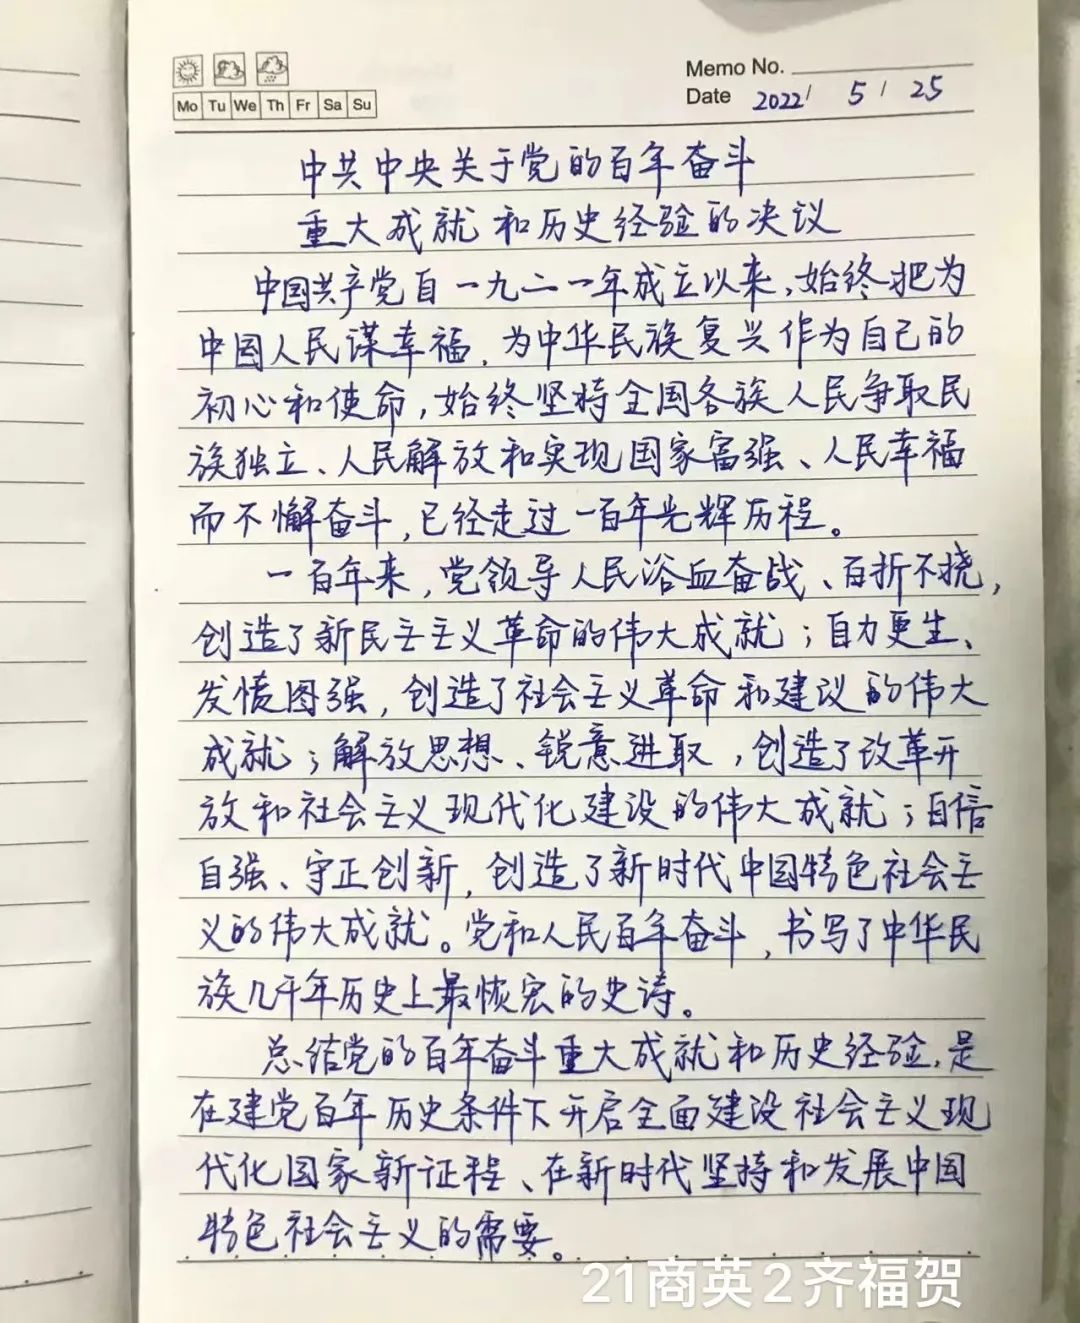 Memo No.
Mo Tu We Th Fr Sa Su
Date 2022/ 5 / 25
中共中央关于党的百年奋斗
重大成就和历史经验的决议
中国共产党自一九二一年成立以来,始终把为
中国人民谋幸福,为中华民族复兴作为自己的
初心和使命,始终坚持全国各族人民争取民
族独立、人民解放和实现国家富强、人民幸福
而不懈奋斗,已经走过一百年光辉历程。
一百年来,党领导人民浴血奋战、百折不挠,
创造了新民主主义革命的伟大成就;自力更生、
发愤图强,创造了社会主义革命和建议的伟大
成就;解放思想、锐意进取,创造了改革开
放和社会主义现代化建设的伟大成就;自信
自强、守正创新,创造了新时代中国特色社会主
义的伟大成就。党和人民百年奋斗,书写了中华民
族几千年历史上最恢宏的史诗。
总结党的百年奋斗重大成就和历史经验,是
在建党百年历史条件下开启全面建设社会主义现
代化国家新证程、在新时代坚持和发展中国
特色社会主义的需要。
21商英2齐福贺